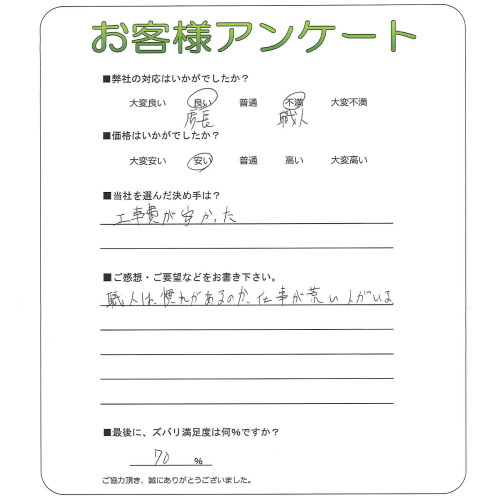 お客様アンケート
■弊社の対応はいかがでしたか？
大変良い 良い 普通 不満 大変不満
店長 職人
■価格はいかがでしたか？
大変安い 安い 普通 高い 大変高い
■当社を選んだ決め手は？
工事費が安かった
■ご感想・ご要望などをお書き下さい。
職人は、慣れがあるのか、仕事が荒い人がいる
■最後に、ズバリ満足度は何％ですか？
70 %
ご協力頂き、誠にありがとうございました。